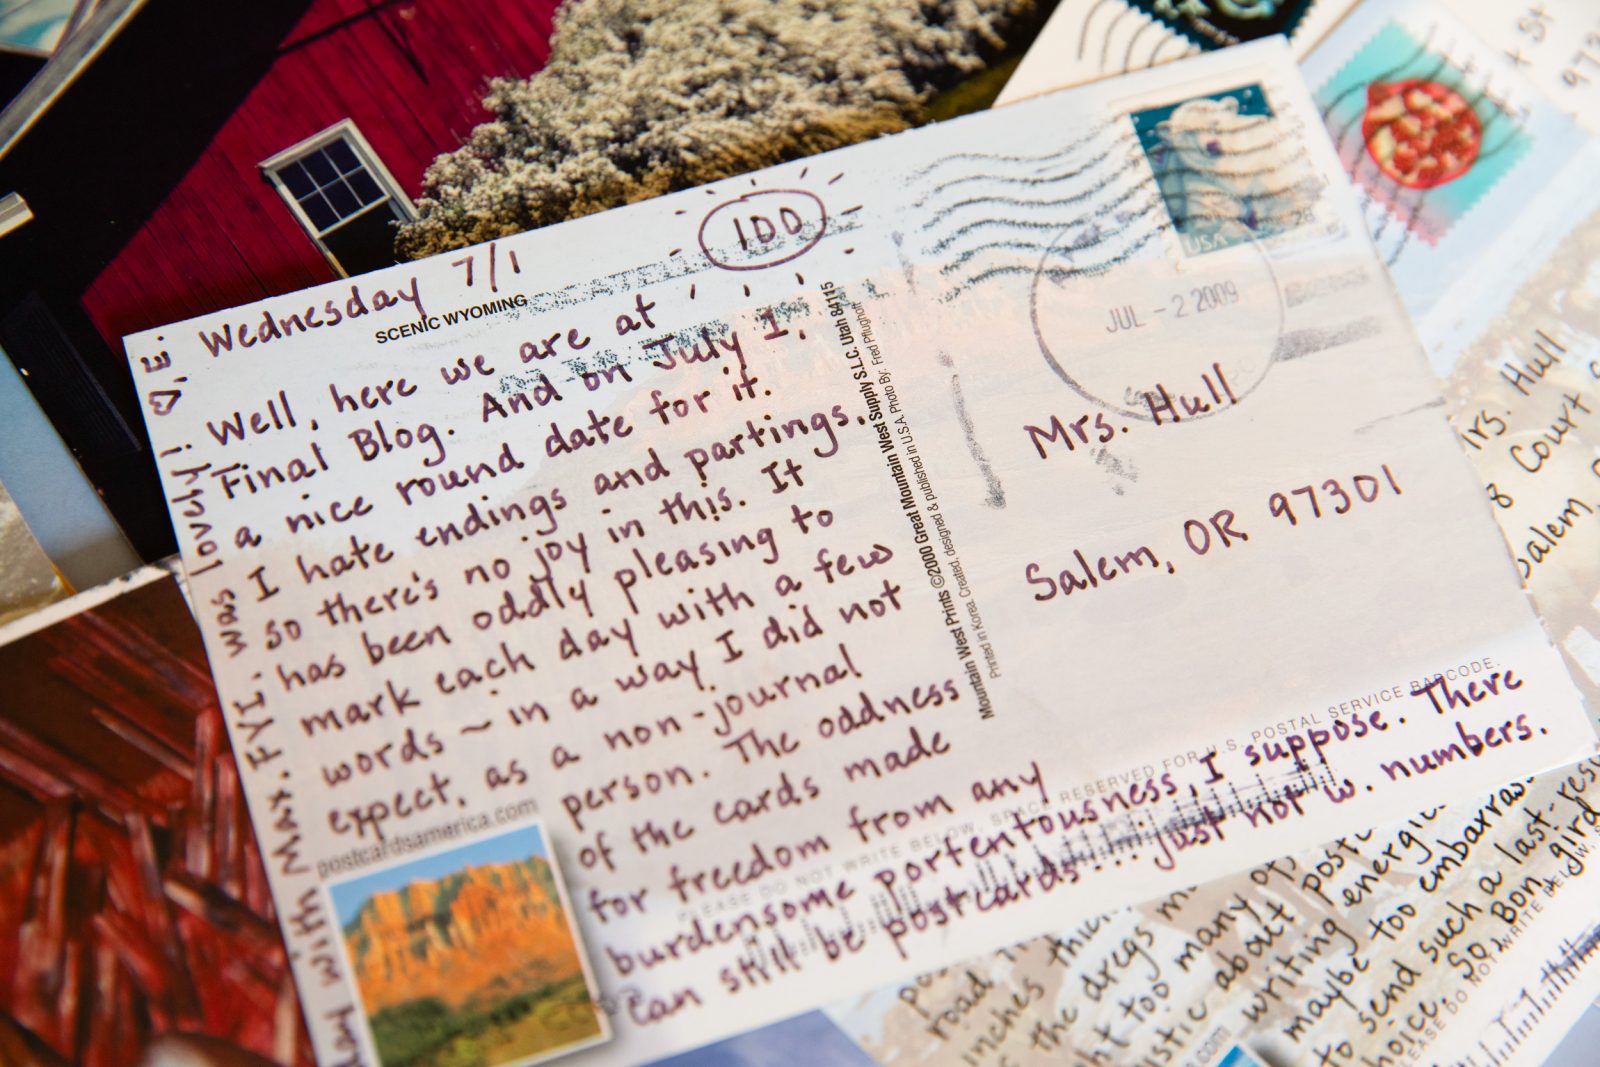 Wednesday 7/1
100
SCENIC WYOMING
Well, here we are at
Final Blog. And on July 1.
a nice round date for it.
I hate endings and partings.
so there's no joy in this. It
has been oddly pleasing to
mark each day with a few
words ~ in a way I did not
expect, as a non-journal
person. The oddness
of the cards made
for freedom from any
burdensome portentousness, I suppose. There
can still be postcards... just not w. numbers.
with Max. FYI. was lovely! ♡, E.
postcardsamerica.com
Mountain West Prints ©2000 Great Mountain West Supply S.L.C. Utah 84115
Printed in Korea. Created, designed & published in U.S.A. Photo By: Fred Pflughoft
USA
JUL - 2 2009
Mrs. Hull
Salem, OR 97301
PLEASE DO NOT WRITE BELOW. SPACE RESERVED FOR U.S. POSTAL SERVICE BARCODE.
St
973
Mrs. Hull
Court
Salem,
road
inches
the dregs
too many of
about
writing energ
maybe too embarras
to send such a last-res
choice. So, Bon
gird
.com